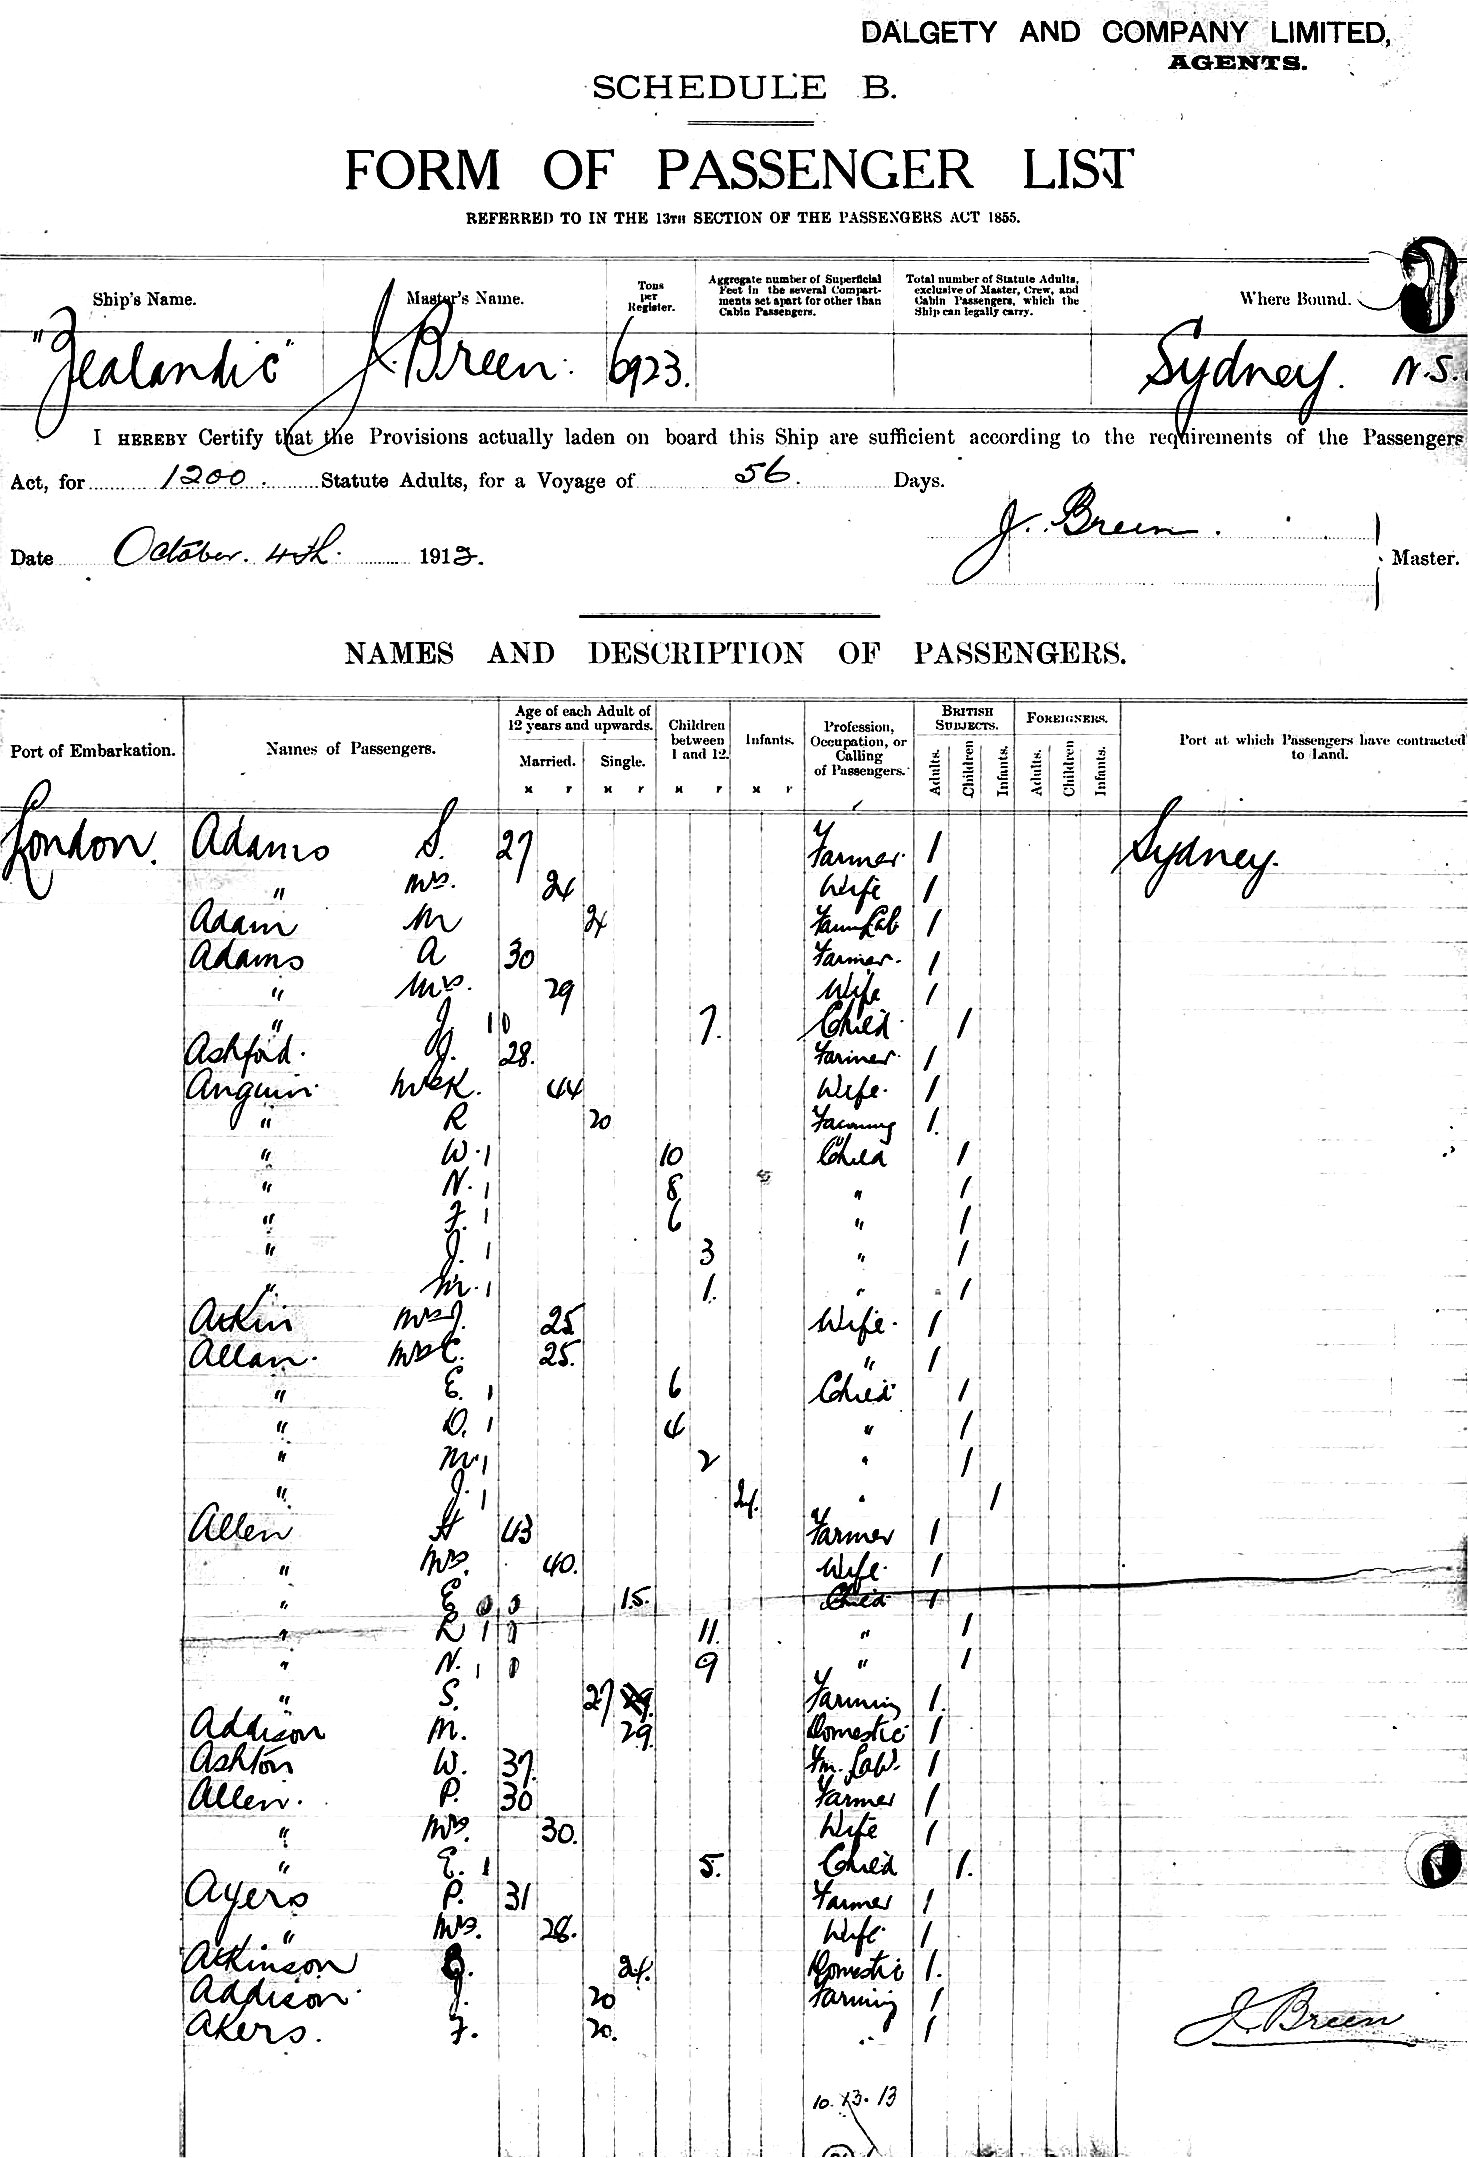 DALGETY AND COMPANY LIMITED,
AGENTS.
SCHEDULE B.
FORM OF PASSENGER LIST
REFERRED TO IN THE 13TH SECTION OF THE PASSENGERS ACT 1855.
Ship's Name. Master's Name. Tons per Register. Aggregate number of Superficial Feet in the several Compartments set apart for other than Cabin Passengers. Total number of Statute Adults, exclusive of Master, Crew, and Cabin Passengers, which the Ship can legally carry. Where Bound.
"Zealandic" J. Breen. 6923. Sydney. N.S.
I HEREBY Certify that the Provisions actually laden on board this Ship are sufficient according to the requirements of the Passengers
Act, for 1200. Statute Adults, for a Voyage of 56. Days.
J. Breen.
Date October. 4th. 1913. Master.
NAMES AND DESCRIPTION OF PASSENGERS.
Port of Embarkation. Names of Passengers. Age of each Adult of 12 years and upwards. Married. Single. Children between 1 and 12. Infants. Profession, Occupation, or Calling of Passengers. BRITISH SUBJECTS. Adults. Children Infants. FOREIGNERS. Adults. Children Infants. Port at which Passengers have contracted to Land.
M F M F M F M F
London. Adams S. 27 Farmer. 1 Sydney.
" Mrs. 24 Wife 1
Adam M 24 Farm Lab 1
Adams A 30 Farmer. 1
" Mrs. 29 Wife 1
" J. 10 7. Child. 1
Ashford. J. 28. Farmer. 1
Anguin. Mrs K. 44 Wife. 1
" R 20 Farming 1.
" W. 1 10 Child 1
" N. 1 8 " 1
" F. 1 6 " 1
" J. 1 3 " 1
" M. 1 1. " 1
Atkin Mrs J. 25 Wife. 1
Allan. Mrs C. 25. " 1
" E. 1 6 Child 1
" D. 1 4 " 1
" M. 1 2 " 1
" J. 1 " 1
Allen H 43 Farmer 1
" Mrs. 40. Wife. 1
" E 0 0 15. Child 1
" R 1 0 11. " 1
" N. 1 0 9 " 1
" S. 27 Farming 1.
Addison M. 29. Domestic 1
Ashton W. 37. Fm. Lab. 1
Allen. P. 30 Farmer 1
" Mrs. 30. Wife 1
" E. 1 5. Child 1.
Ayers P. 31 Farmer 1
" Mrs. 28. Wife. 1
Atkinson 24. Domestic 1.
Addison. J. 20 Farming 1
Akers. F. 20. " 1
J. Breen
10. 13. 13